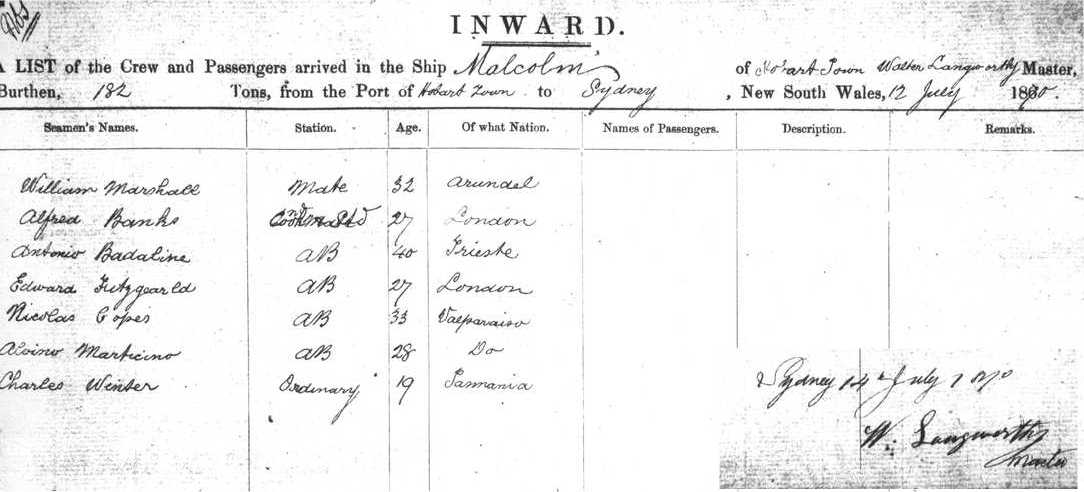 INWARD.
A LIST of the Crew and Passengers arrived in the Ship Malcolm of Hobart Town Walter Langworthy Master,
Burthen, 182 Tons, from the Port of Hobart Town to Sydney, New South Wales, 12 July 1870.
Seamen's Names. Station. Age. Of what Nation. Names of Passengers. Description. Remarks.
William Marshall Mate 32 Arundel
Alfred Banks 27 London
Antonio Badaline AB 40 Trieste
Edward Fitzgearld AB 27 London
Nicolas Copes AB 33 Valparaiso
Marticino AB 28 Do
Charles Winter Ordinary 19 Tasmania
Sydney 14th July 1870
W. Langworthy
Master